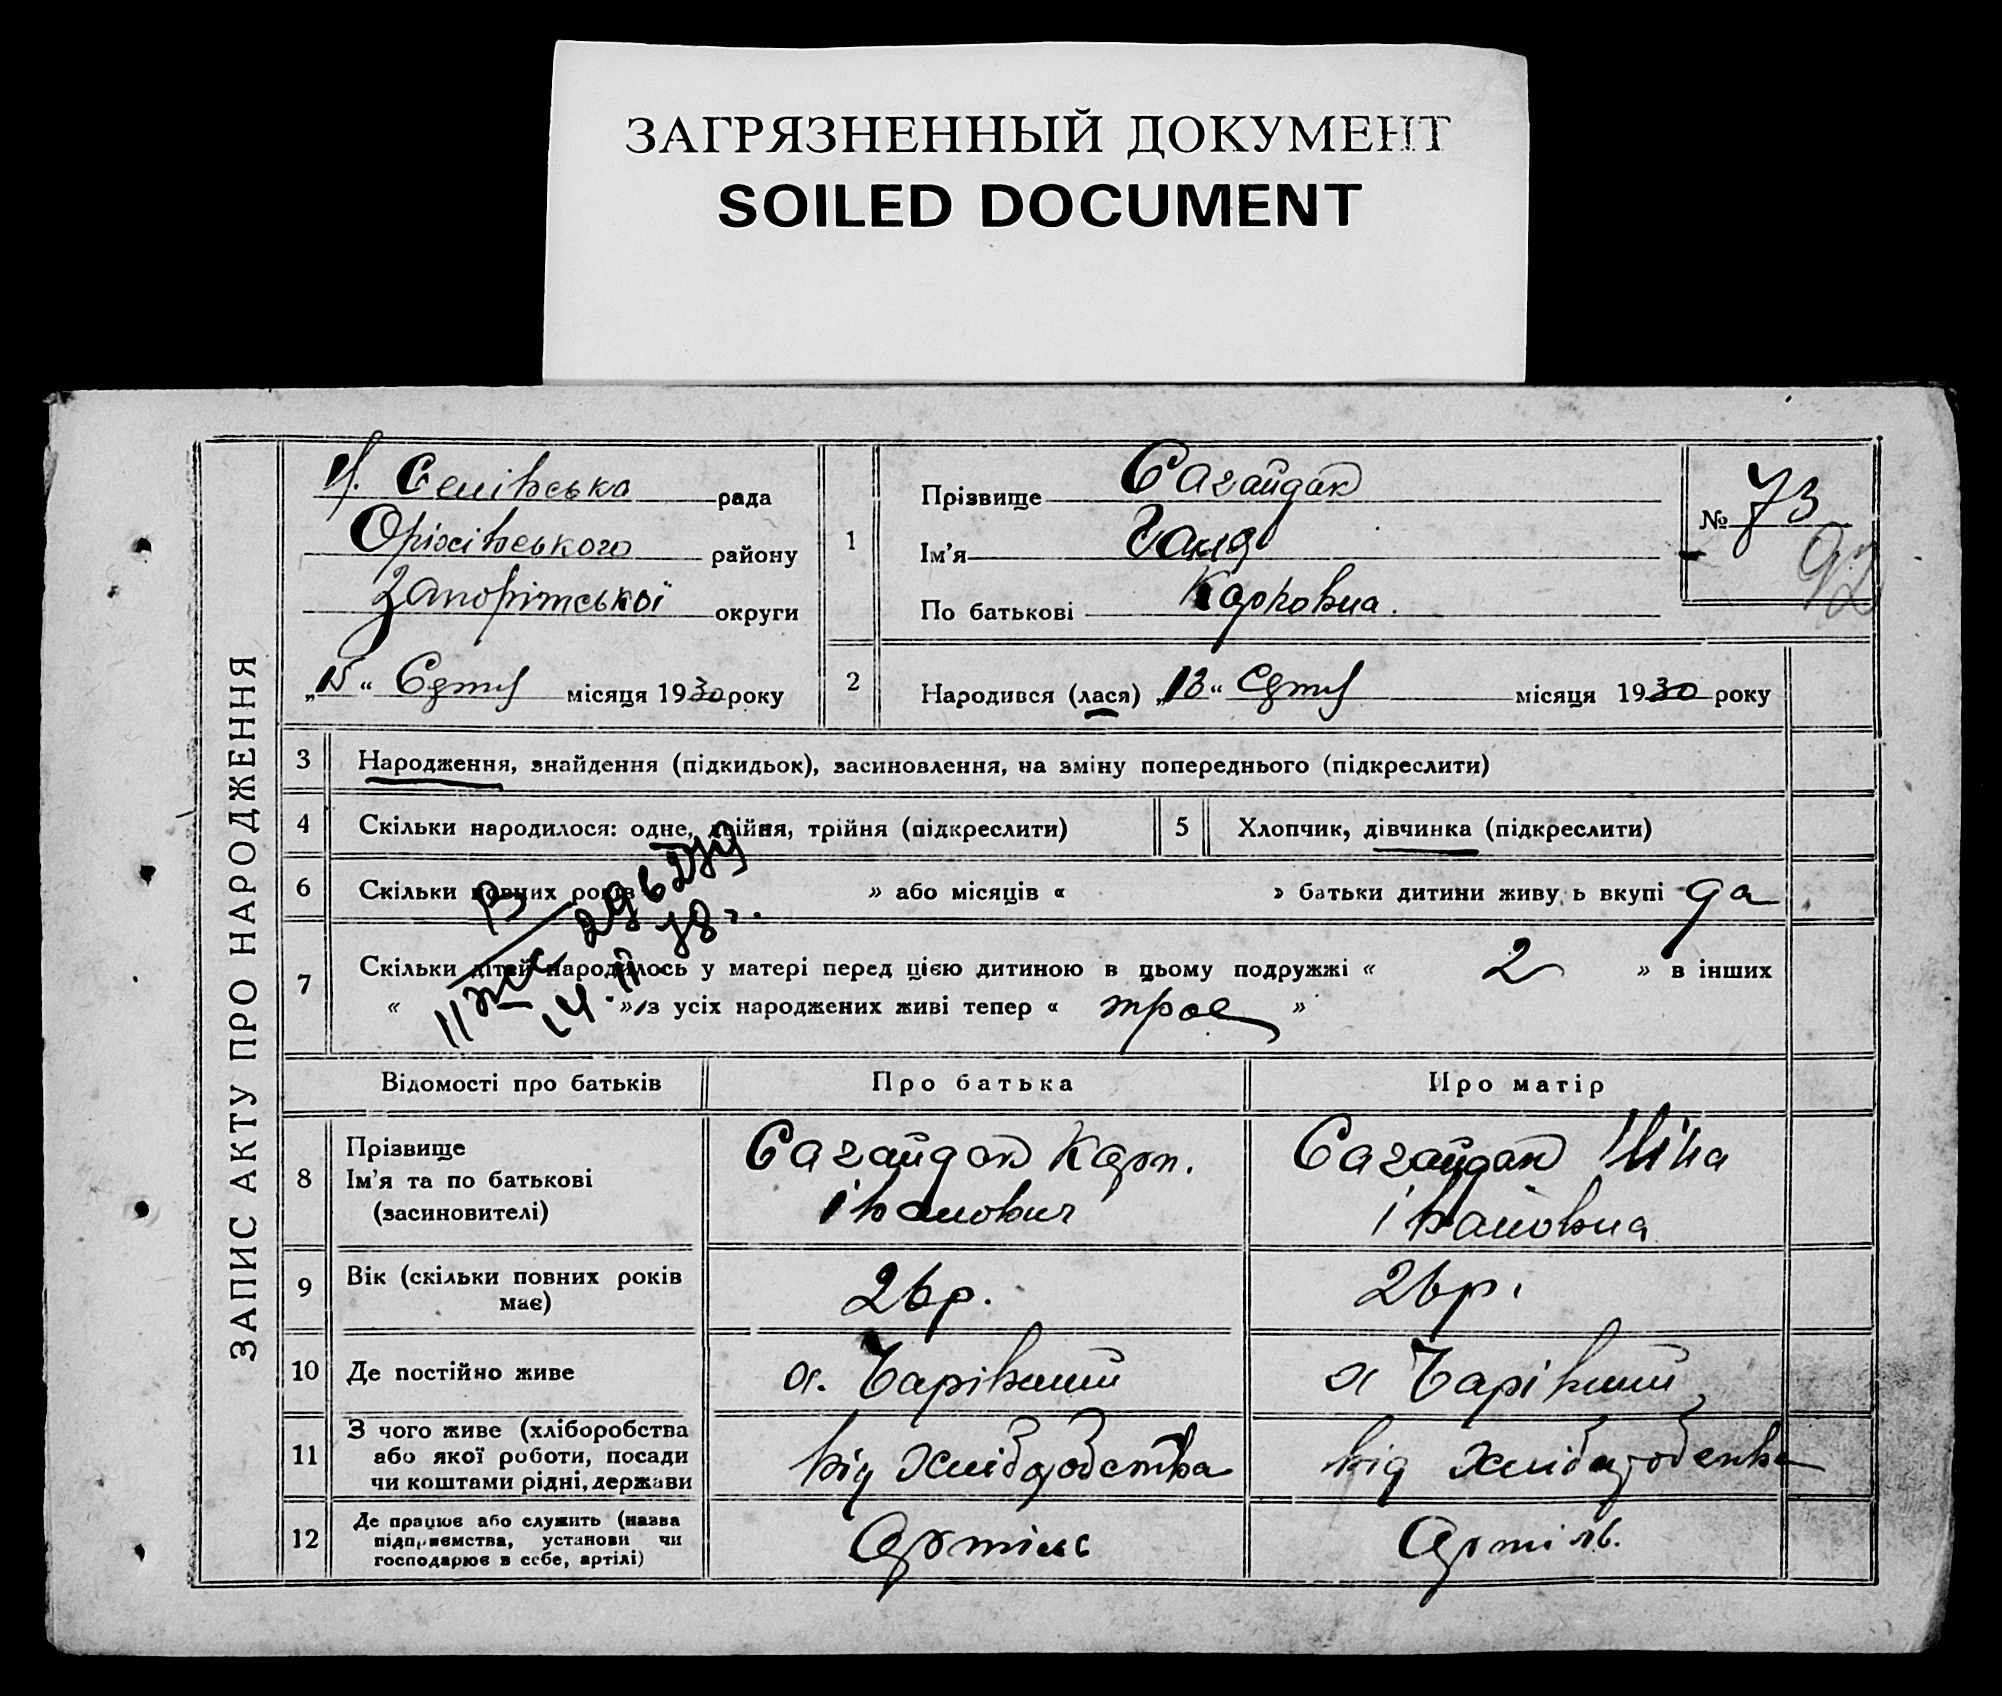 ЗАГРЯЗНЕННЫЙ ДОКУМЕНТ
SOILED DOCUMENT
ЗАПИС АКТУ ПРО НАРОДЖЕННЯ
рада
Оріхівського району
Запоріжської округи
„15“ Сдтня місяця 1930 року
1
Прізвище Сагайдак
Ім’я Ганя
По батькові Карповна.
№ 73
92
2
Народився (лася) „13“ Сдтня місяця 1930 року
3 Народження, знайдення (підкидьок), засиновлення, на зміну попереднього (підкреслити)
4 Скільки народилося: одне, двійня, трійня (підкреслити)
5 Хлопчик, дівчинка (підкреслити)
6 Скільки повних років » або місяців « » батьки дитини живу ь вкупі да
7 Скільки дітей народилось у матері перед цією дитиною в цьому подружжі « 2 » в інших
« » з усіх народжених живі тепер « трое »
296
14. II 78 г.
Відомості про батьків Про батька Про матір
8 Прізвище
Ім’я та по батькові
(засиновителі)
Сагайдак Карп.
Іванович
Сагайдак
Івановна
9 Вік (скільки повних років
має)
26 р.
26 р.
10 Де постійно живе
11 З чого живе (хліборобства
або якої роботи, посади
чи коштами рідні, держави
від хліборобства
від хліборобства
12 Де працює або служить (назва
підприємства, установи чи
господарює в себе, артілі)
Артіль
Артіль.